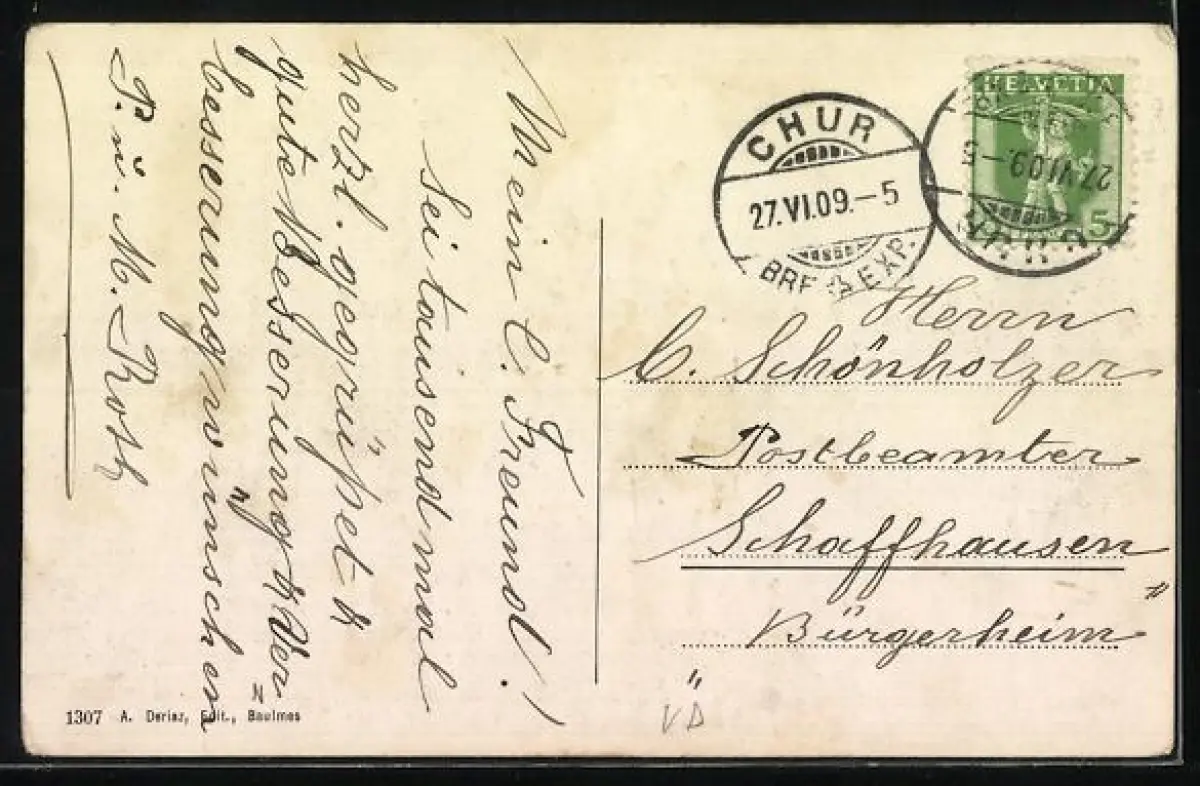 Mein C. Freund!
Sei tausendmal
herzl. gegrüßet &
gute Besserung & Ver=
besserung wünschen
P. u. M. Roth
HELVETIA
5
CHUR
27.VI.09.–5
BRF. EXP.
27.VI.09.–5
CHUR
Herrn
C. Schönholzer
Postbeamter
Schaffhausen
"Bürgerheim"
VD
1307 A. Deriaz, Edit., Baulmes